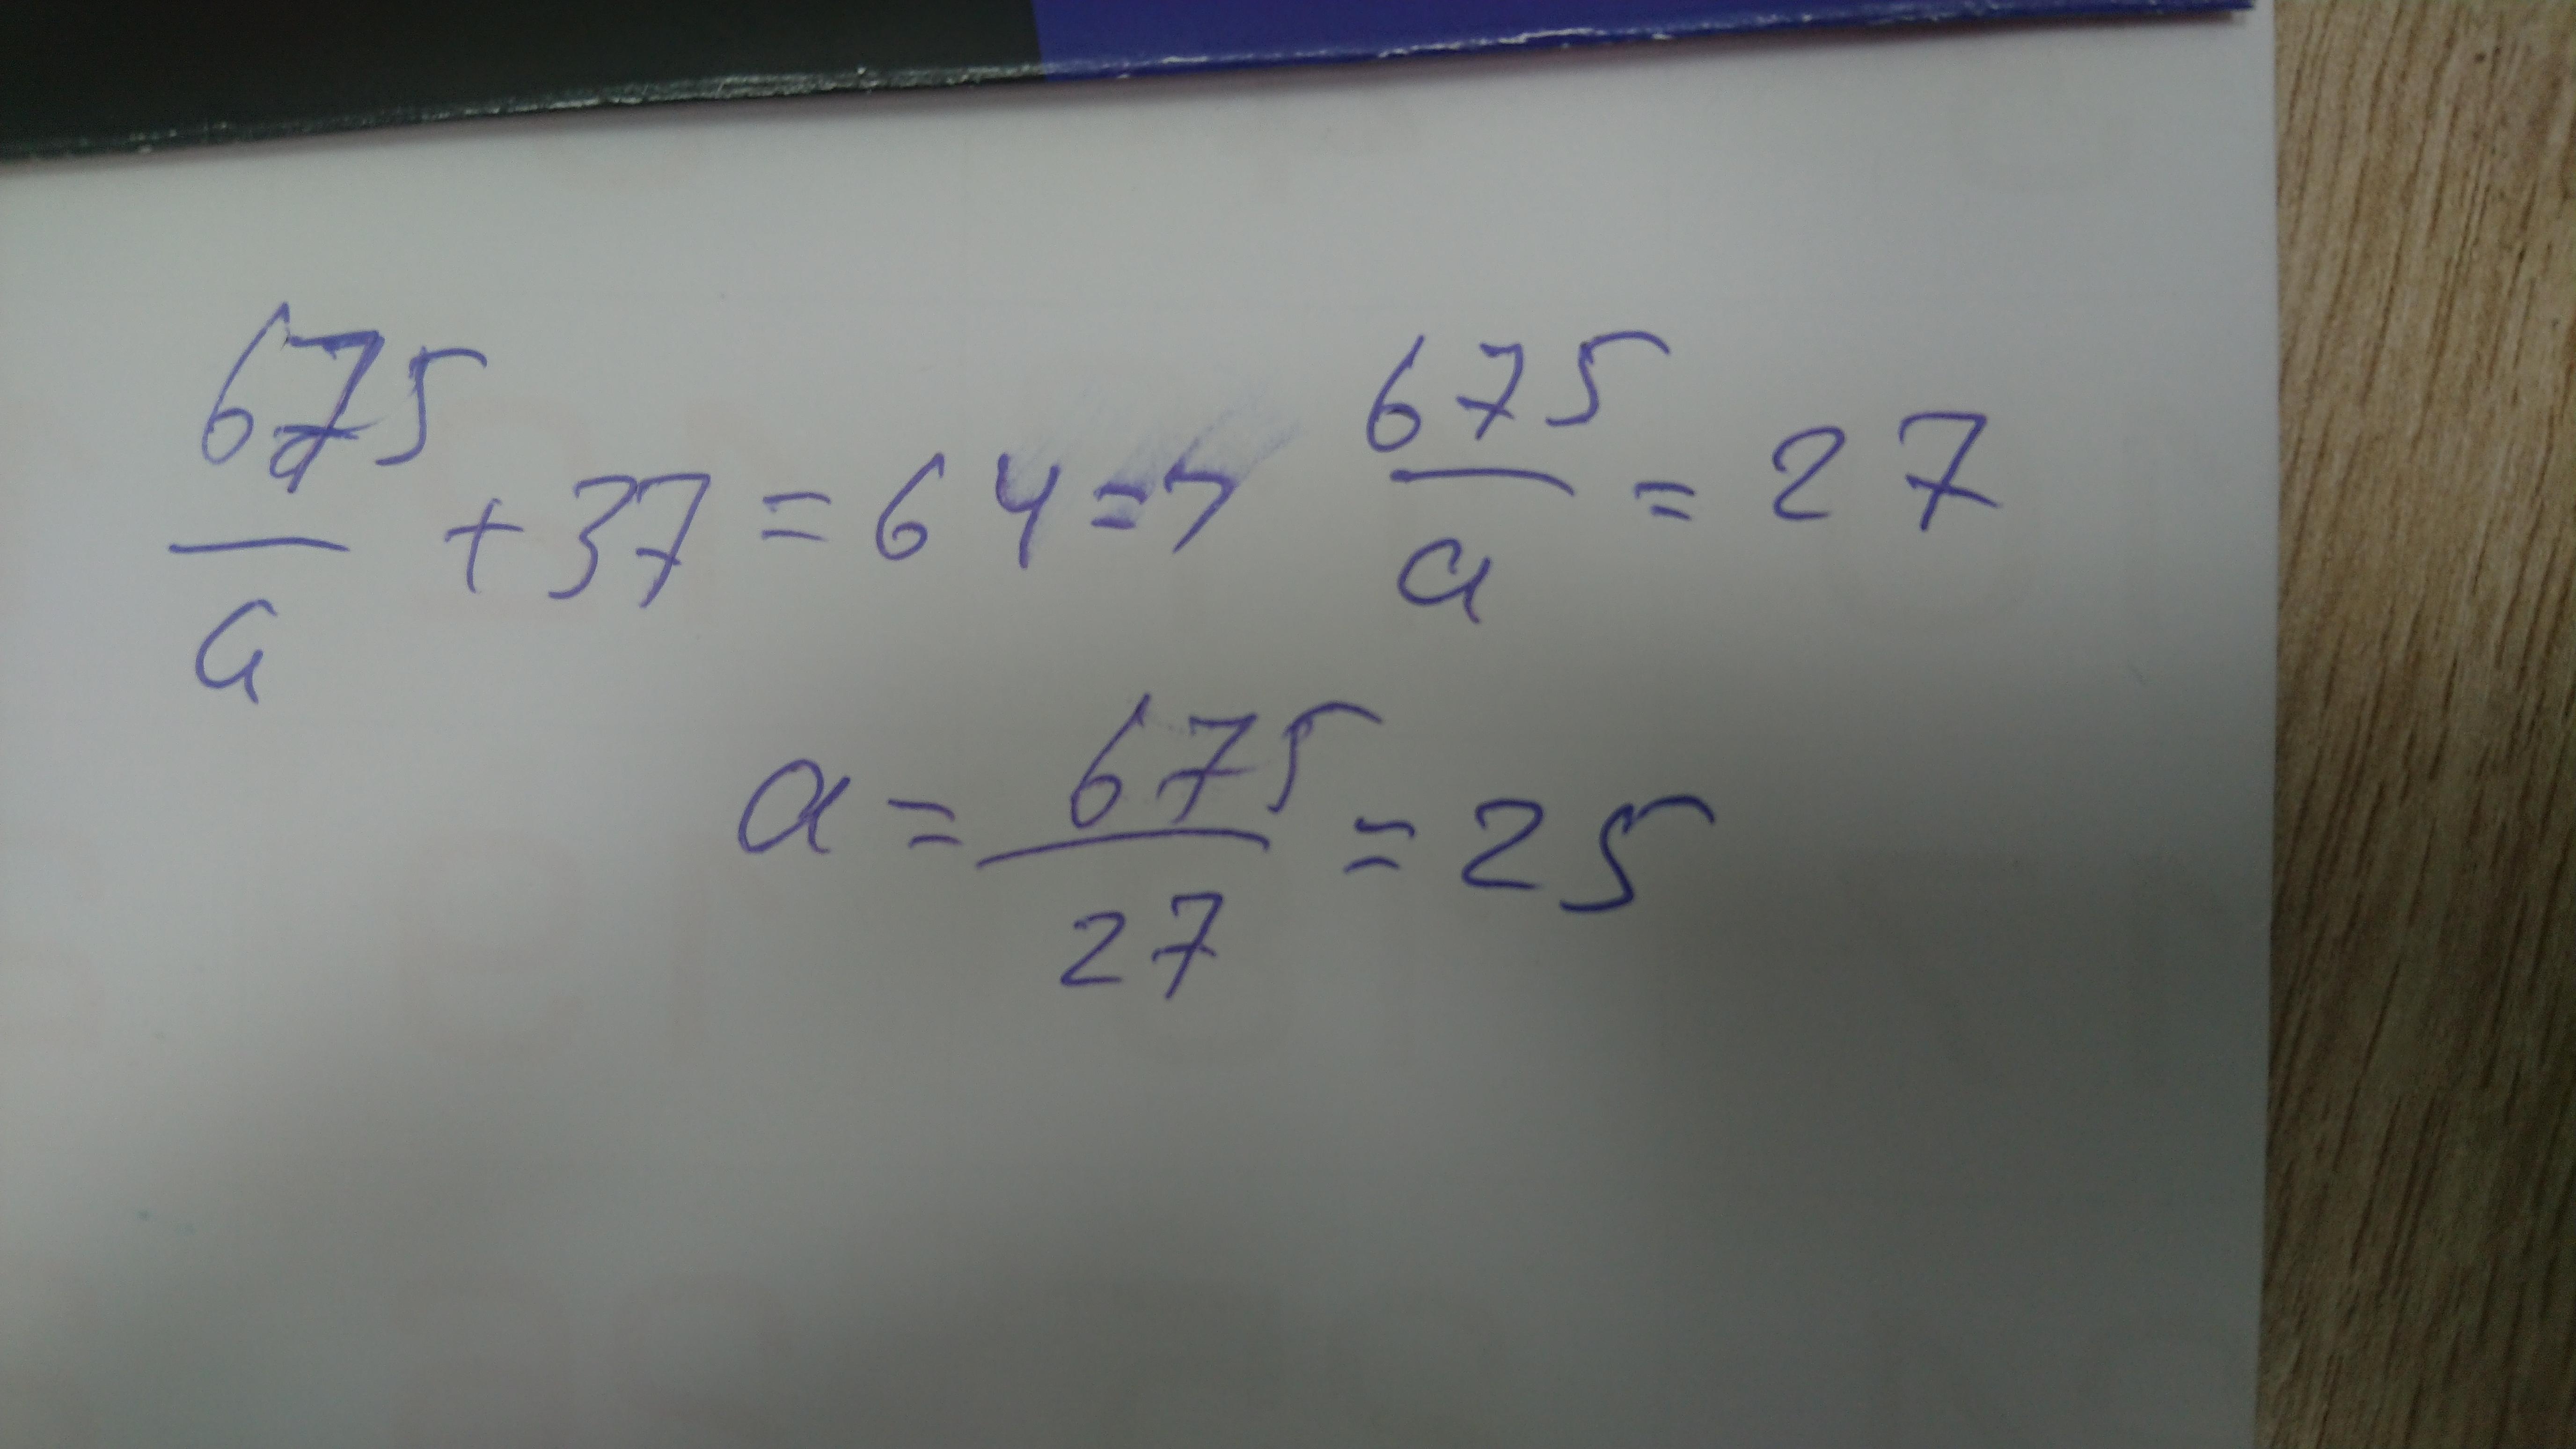 675/a + 37 = 64 => 675/a = 27
a = 675/27 = 25